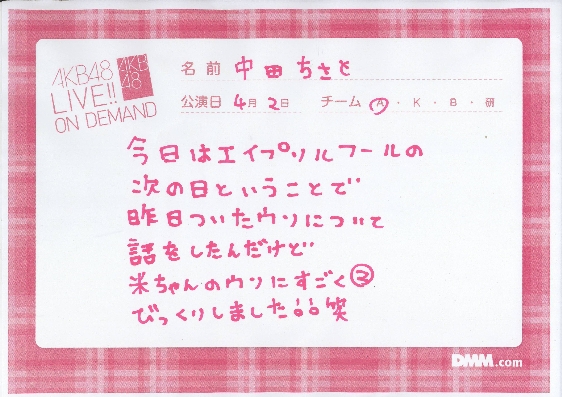 AKB48
LIVE!!
ON DEMAND
AKB
48
名前 中田ちさと
公演日 4月2日 チーム A・K・B・研
今日はエイプリルフールの
次の日ということで
昨日ついたウソについて
話をしたんだけど
米ちゃんのウソにすごく
びっくりしました 笑
DMM.com